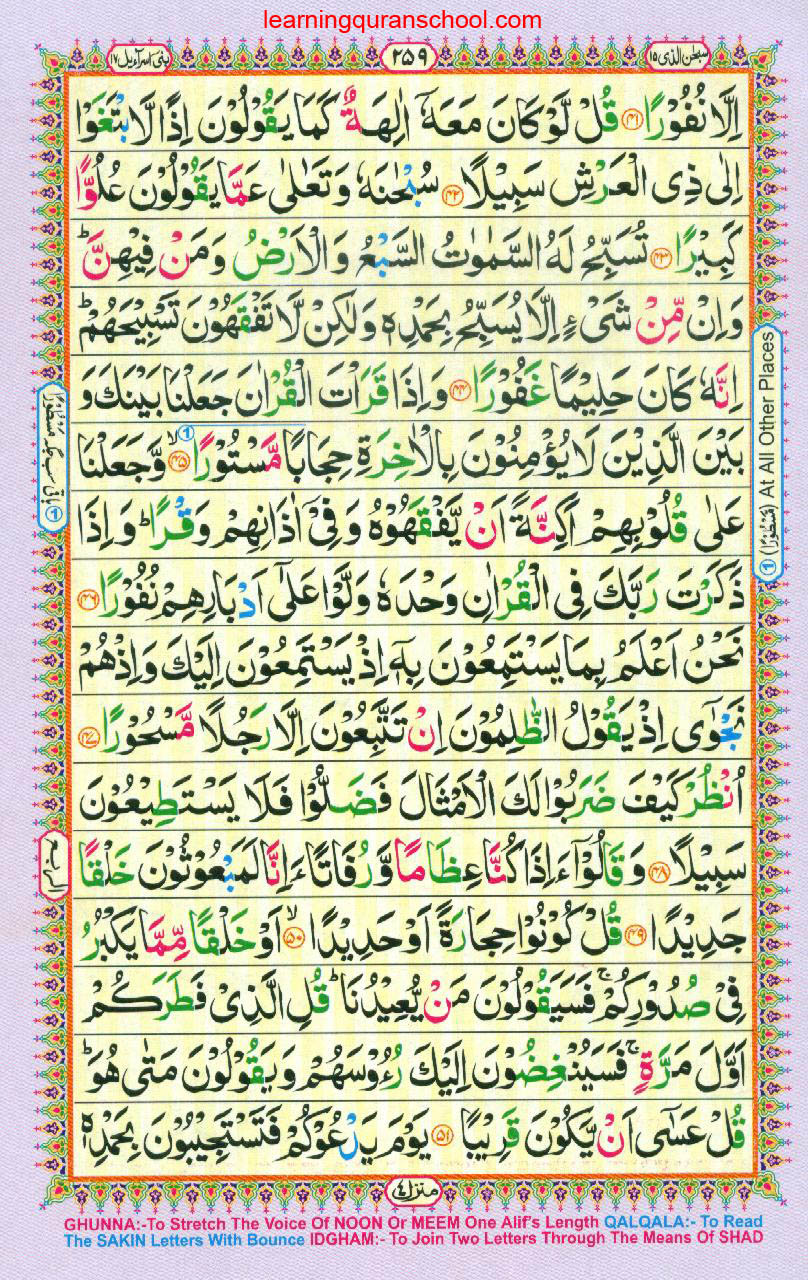 learningquranschool.com
سبحٰن الذی ۱۵
۲۵۹
بنی اسرآءیل ۱۷
اِلَّا نُفُوۡرًا ﴿۴۱﴾ قُلۡ لَّوۡ كَانَ مَعَهٗۤ اٰلِهَةٌ كَمَا يَقُوۡلُوۡنَ اِذًا لَّابۡتَغَوۡا
اِلٰى ذِى الۡعَرۡشِ سَبِيۡلًا ﴿۴۲﴾ سُبۡحٰنَهٗ وَتَعٰلٰى عَمَّا يَقُوۡلُوۡنَ عُلُوًّا
كَبِيۡرًا ﴿۴۳﴾ تُسَبِّحُ لَهُ السَّمٰوٰتُ السَّبۡعُ وَالۡاَرۡضُ وَمَنۡ فِيۡهِنَّ ؕ
وَاِنۡ مِّنۡ شَىۡءٍ اِلَّا يُسَبِّحُ بِحَمۡدِهٖ وَلٰكِنۡ لَّا تَفۡقَهُوۡنَ تَسۡبِيۡحَهُمۡ ؕ
اِنَّهٗ كَانَ حَلِيۡمًا غَفُوۡرًا ﴿۴۴﴾ وَاِذَا قَرَاۡتَ الۡقُرۡاٰنَ جَعَلۡنَا بَيۡنَكَ وَ
بَيۡنَ الَّذِيۡنَ لَا يُؤۡمِنُوۡنَ بِالۡاٰخِرَةِ حِجَابًا مَّسۡتُوۡرًا ۙ﴿۴۵﴾ وَّجَعَلۡنَا
عَلٰى قُلُوۡبِهِمۡ اَكِنَّةً اَنۡ يَّفۡقَهُوۡهُ وَفِىۡۤ اٰذَانِهِمۡ وَقۡرًا ؕ وَاِذَا
ذَكَرۡتَ رَبَّكَ فِى الۡقُرۡاٰنِ وَحۡدَهٗ وَلَّوۡا عَلٰٓى اَدۡبَارِهِمۡ نُفُوۡرًا ﴿۴۶﴾
نَحۡنُ اَعۡلَمُ بِمَا يَسۡتَمِعُوۡنَ بِهٖۤ اِذۡ يَسۡتَمِعُوۡنَ اِلَيۡكَ وَاِذۡ هُمۡ
نَجۡوٰٓى اِذۡ يَقُوۡلُ الظّٰلِمُوۡنَ اِنۡ تَتَّبِعُوۡنَ اِلَّا رَجُلًا مَّسۡحُوۡرًا ﴿۴۷﴾
اُنْظُرۡ كَيۡفَ ضَرَبُوۡا لَكَ الۡاَمۡثَالَ فَضَلُّوۡا فَلَا يَسۡتَطِيۡعُوۡنَ
سَبِيۡلًا ﴿۴۸﴾ وَقَالُوۡٓا ءَاِذَا كُنَّا عِظَامًا وَّرُفَاتًا ءَاِنَّا لَمَبۡعُوۡثُوۡنَ خَلۡقًا
جَدِيۡدًا ﴿۴۹﴾ قُلۡ كُوۡنُوۡا حِجَارَةً اَوۡ حَدِيۡدًا ۙ﴿۵۰﴾ اَوۡ خَلۡقًا مِّمَّا يَكۡبُرُ
فِىۡ صُدُوۡرِكُمۡ ۚ فَسَيَقُوۡلُوۡنَ مَنۡ يُّعِيۡدُنَا ؕ قُلِ الَّذِىۡ فَطَرَكُمۡ
اَوَّلَ مَرَّةٍ ۚ فَسَيُنۡغِضُوۡنَ اِلَيۡكَ رُءُوۡسَهُمۡ وَيَقُوۡلُوۡنَ مَتٰى هُوَ ؕ
قُلۡ عَسٰٓى اَنۡ يَّكُوۡنَ قَرِيۡبًا ﴿۵۱﴾ يَوۡمَ يَدۡعُوۡكُمۡ فَتَسۡتَجِيۡبُوۡنَ بِحَمۡدِهٖ
① (مَسْطُوۡرًا) At All Other Places
① باقی سب جگہ مَسْطُوۡرًا
الربع
منزل ۴
GHUNNA:-To Stretch The Voice Of NOON Or MEEM One Alif's Length QALQALA:- To Read
The SAKIN Letters With Bounce IDGHAM:- To Join Two Letters Through The Means Of SHAD